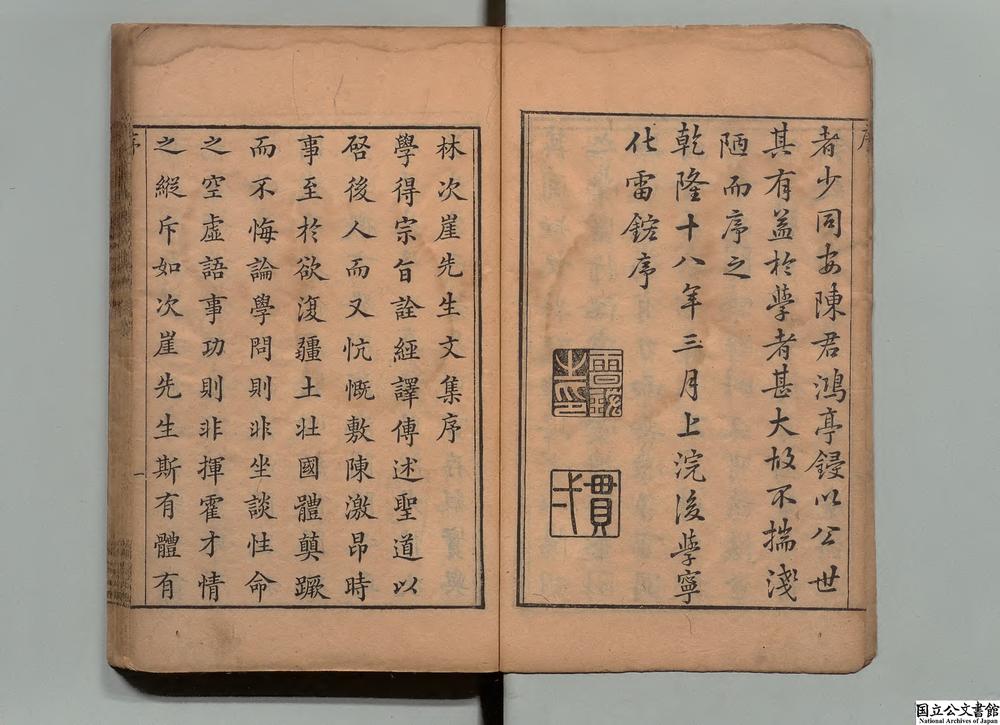 序
者少同安陳君鴻亭鋟以公世
其有益於學者甚大故不揣淺
陋而序之
乾隆十八年三月上浣後學寧
化雷鋐序
雷鋐
之印
貫一
林次崖先生文集序
學得宗旨詮經譯傳述聖道以
啓後人而又忼慨敷陳激昂時
事至於欲復疆土壯國體蹎蹶
而不悔論學問則非坐談性命
之空虛語事功則非揮霍才情
之縱斥如次崖先生斯有體有
序
一
国立公文書館
National Archives of Japan